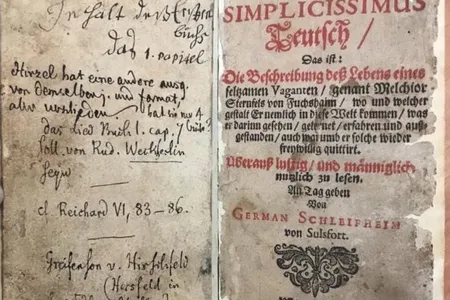 Inhalt deß Ersten
Buchs
das 1. capitel
Hirzel hat eine andere ausg.
von demselben j. und format,
aber verschieden
hat nur 4
das dies Buchs 1. cap. 7
soll von Rud. Weckherlin
seyn
cl. Reichard VI, 83-86.
Greifenson v. Hirschfeld
(Hersfeld in
SIMPLICISSIMUS
Teutsch /
Das ist:
Die Beschreibung deß Lebens eines
seltzamen Vaganten / genant Melchior
Sternfels von Fuchshaim / wo und welcher
gestalt Er nemlich in diese Welt kommen / was
er darinn gesehen / gelernet / erfahren und auß-
gestanden / auch warumb er solche wieder
freywillig quittirt.
Überauß lustig / und männiglich
nutzlich zu lesen.
An Tag geben
Von
GERMAN SCHLEIFHEIM
von Sulsfort.